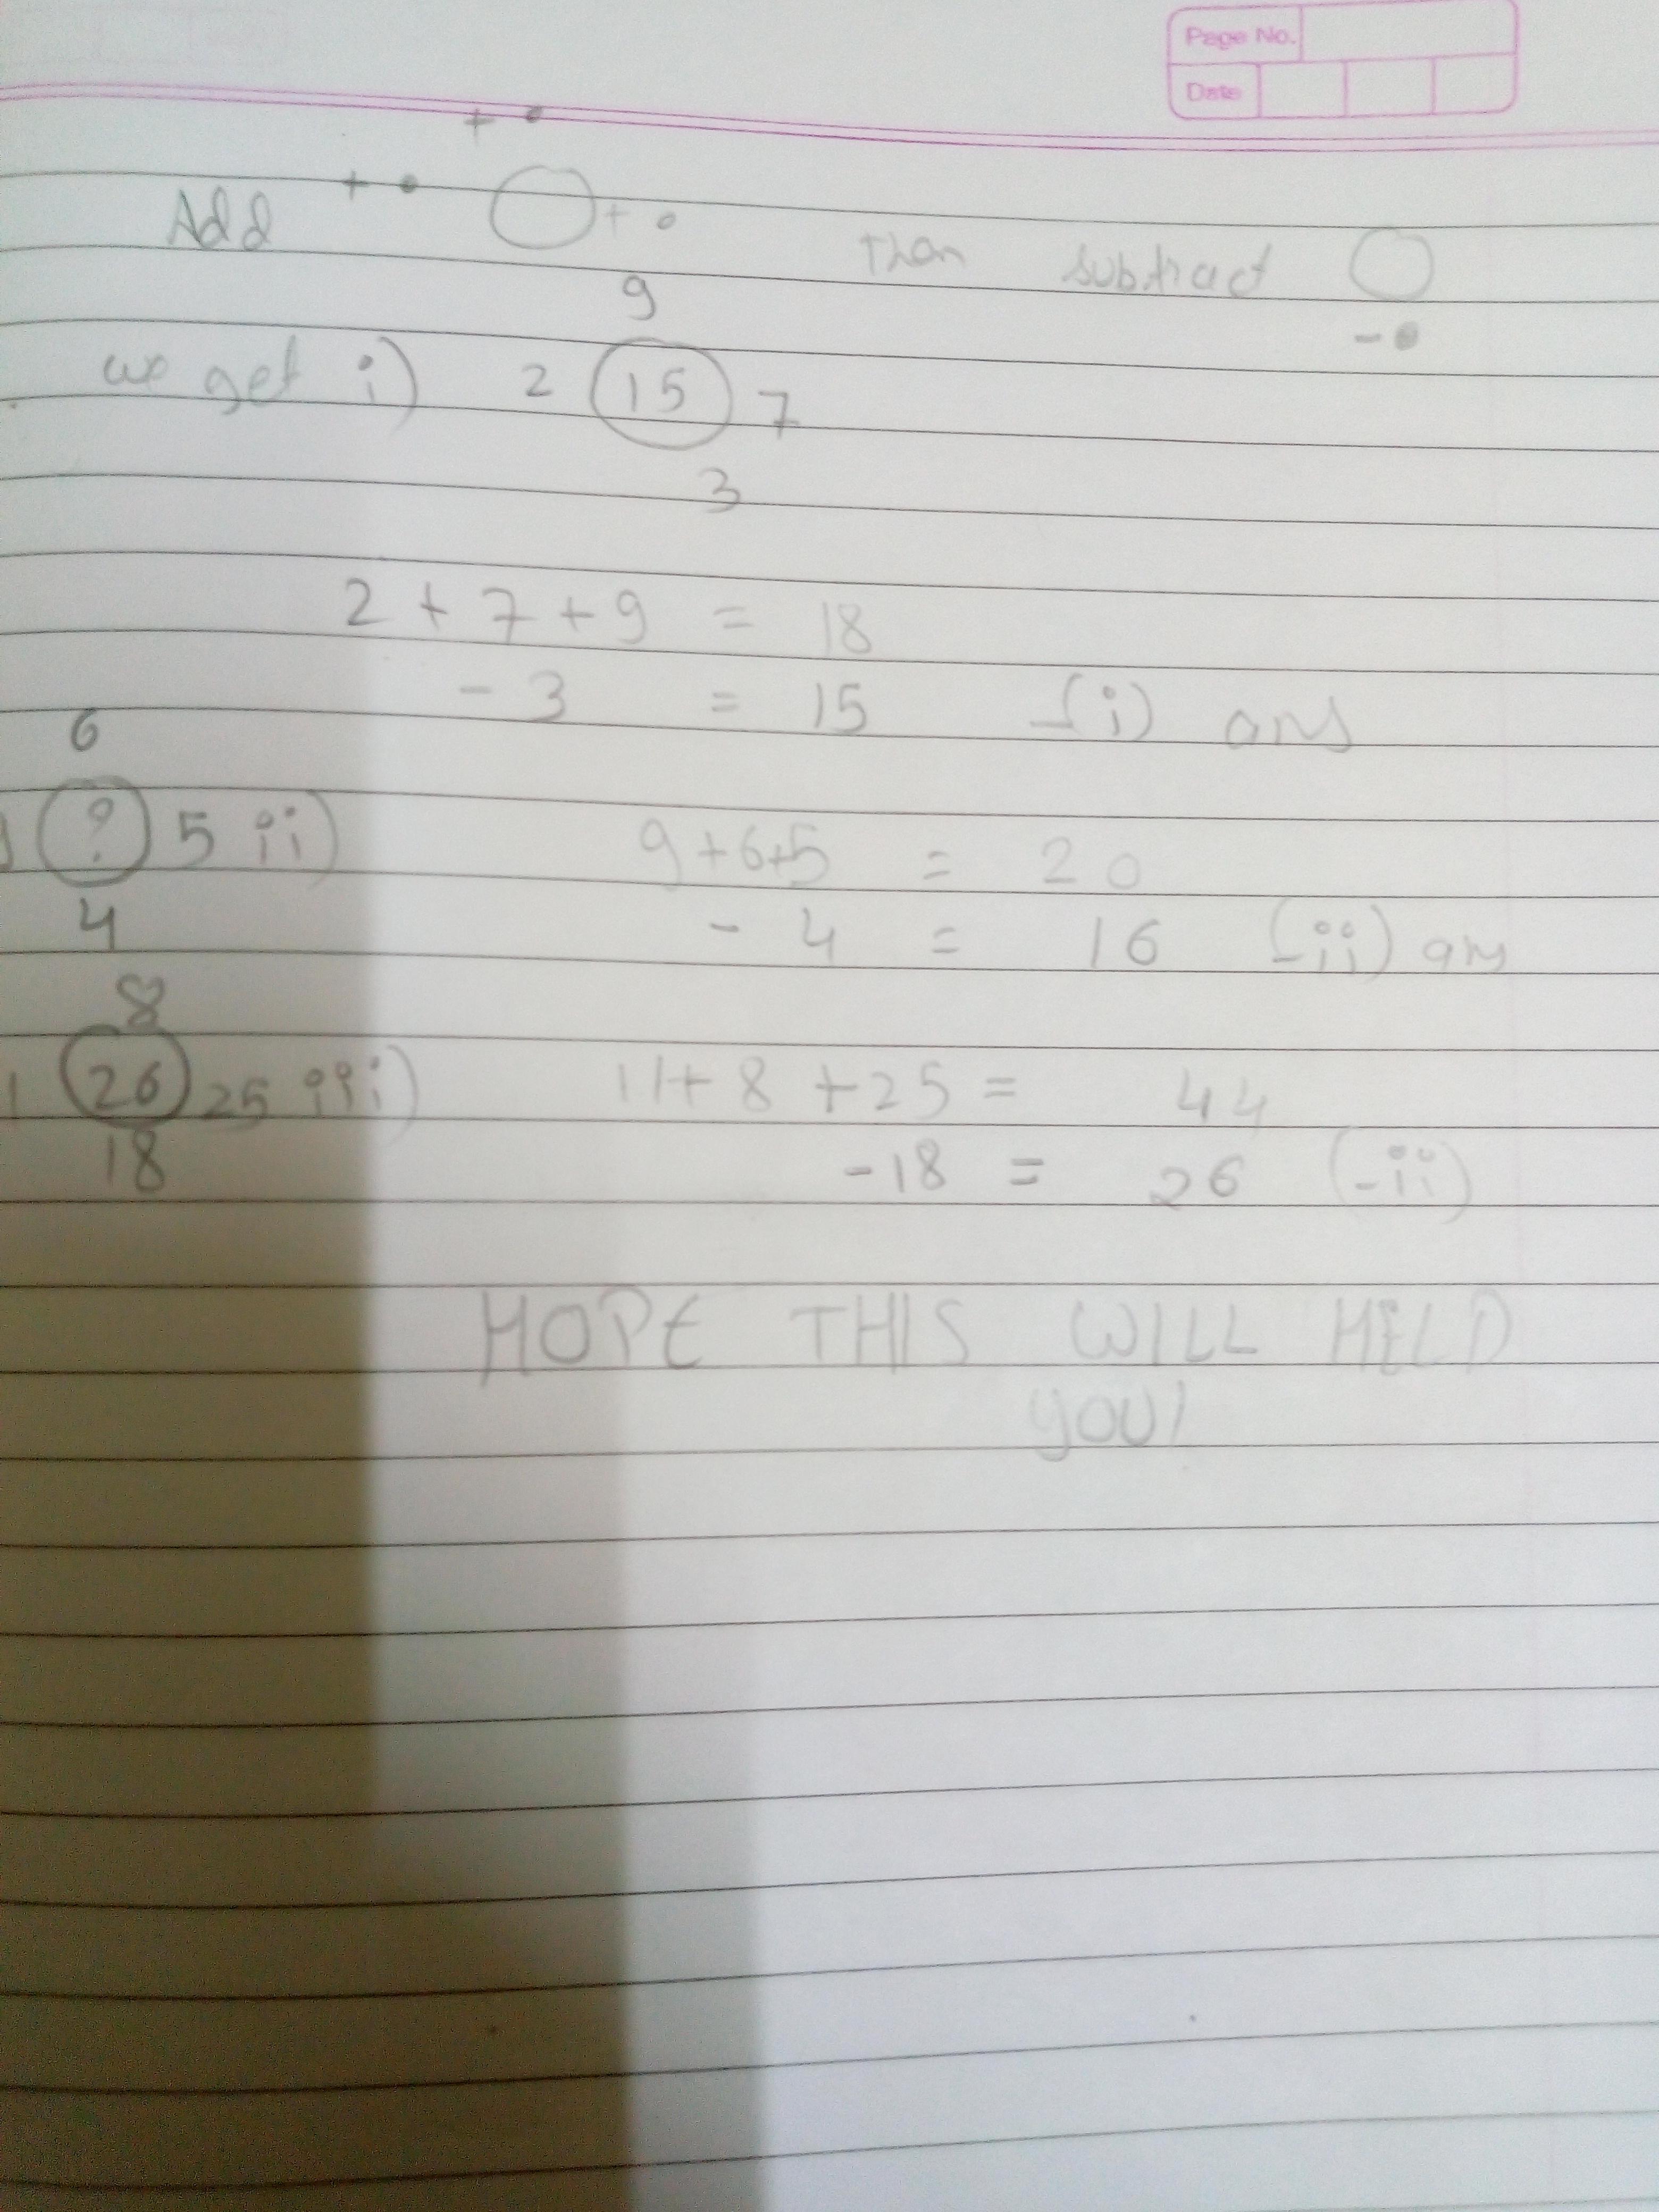 Page No.
Date
+ •
Add + • + • Then subtract
- •
9
we get i) 2 15 7
3
2 + 7 + 9 = 18
- 3 = 15 -(i) ans
6
9 ? 5 ii) 9+6+5 = 20
4 - 4 = 16 (-ii) ans
8
26 25 iii) 11+ 8 +25 = 44
18 -18 = 26 (-ii)
HOPE THIS WILL HELD
YOU!